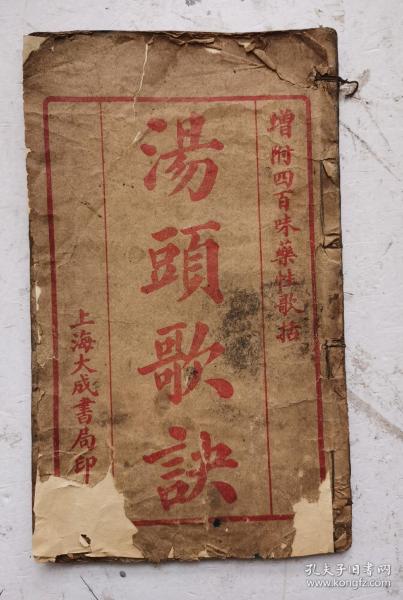 增附四百味藥性歌括
湯頭歌訣
上海大成書局印
孔夫子旧书网
www.kongfz.com